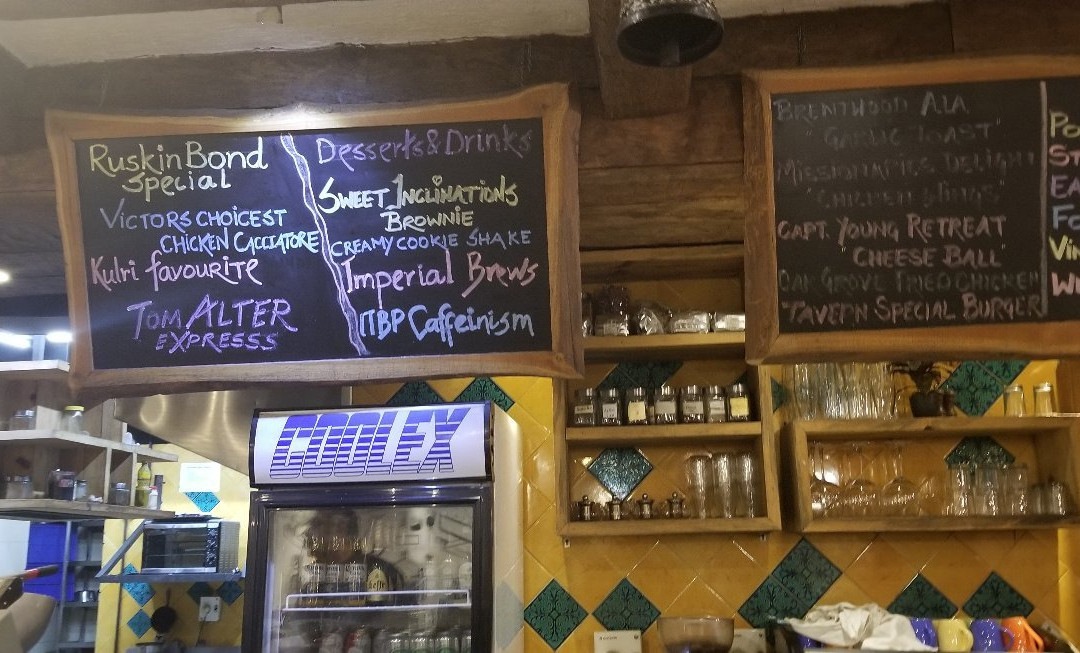 Ruskin Bond
Special
Victors choicest
chicken Cacciatore
Kulri favourite
Tom ALTER
EXPRESSS
Desserts & Drinks
Sweet Inclinations
Brownie
Creamy cookie Shake
Imperial Brews
ΠBP Caffeinism
Brentwood Ala
"Garlic Toast"
Missionaries Delight
"Chicken Wings"
Capt. Young Retreat
"Cheese Ball"
Oakgrove Fried Chicken
Tavern Special Burger
Po
St
Ea
Fo
Vin
W
COOLEX